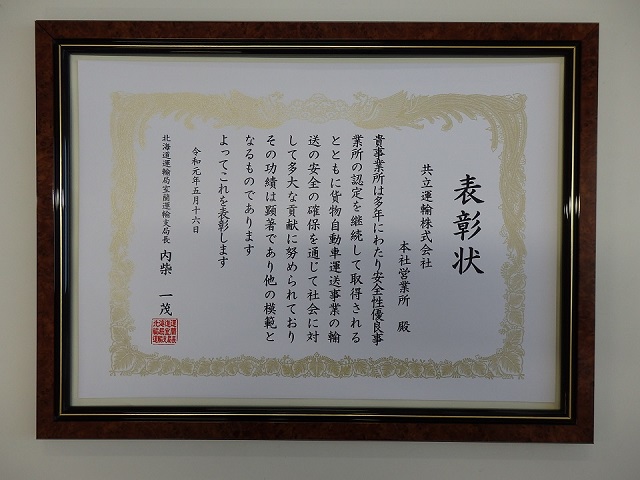 表彰状
共立運輸株式会社
本社営業所 殿
貴事業所は多年にわたり安全性優良事
業所の認定を継続して取得される
とともに貨物自動車運送事業の輸
送の安全の確保を通じて社会に対
して多大な貢献に努められており
その功績は顕著であり他の模範と
なるものであります
よってこれを表彰します
令和元年五月十六日
北海道運輸局室蘭運輸支局長 内柴 一茂